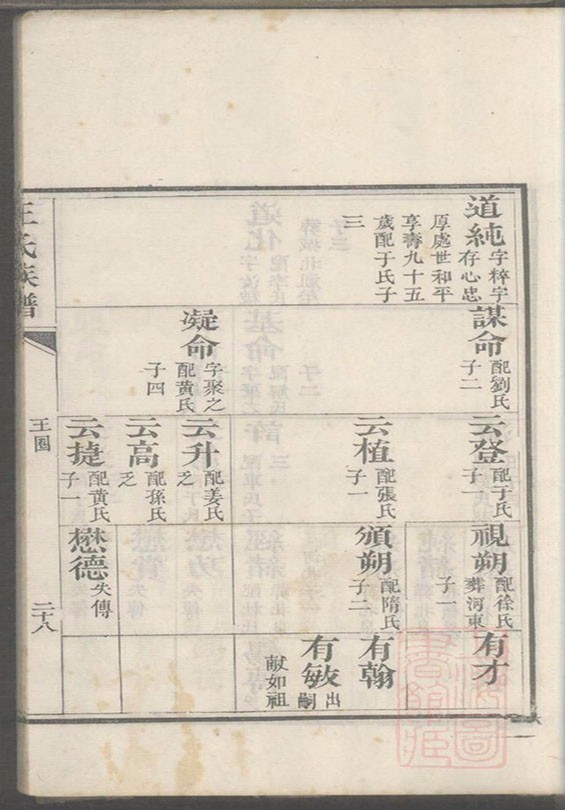 道純字粹字
存心忠
厚處世和平
享壽九十五
歲配于氏子
三
謀命配劉氏
子二
凝命字聚之
配黄氏
子四
云登配于氏
子一
云植配張氏
子一
云升配姜氏
乏
云高配孫氏
乏
云捷配黄氏
子一
視朔配徐氏
葬河東
子一
頒朔配隋氏
子二
懋德失傳
有才
有翰
有敏出嗣
献如祖
王氏族譜
二十八